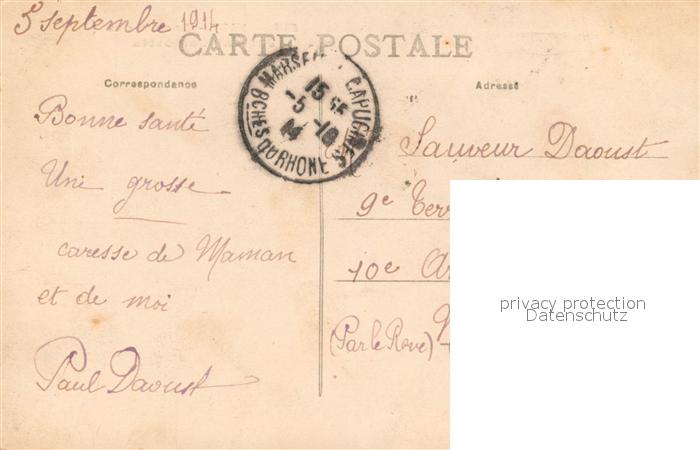 5 septembre 1914
CARTE POSTALE
Correspondance
Adresse
MARSEILLE CAPUCINES
15
-5 -10
14
BCHES DU RHONE
Bonne santé
Une grosse
caresse de Maman
et de moi
Paul Daoust
Sauveur Daoust
9e Terr
10e
(Par le Rove)
privacy protection
Datenschutz